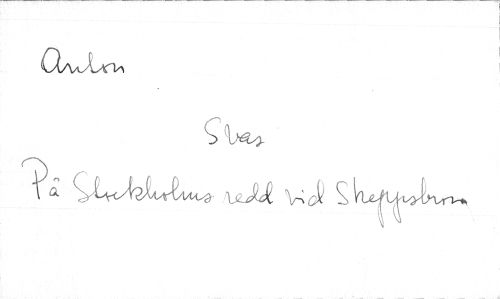 Anton
Svas
På Stockholms redd vid Skeppsbron